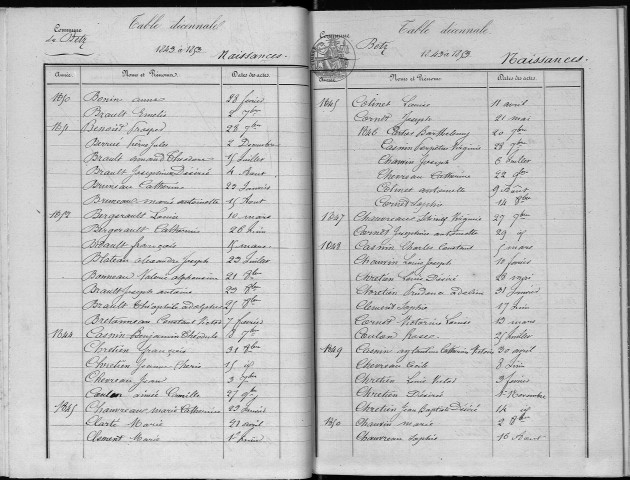 Commune
de Betz
Table décennale
1843 à 1853
Naissances.
Année
Noms et Prénoms
Dates des actes
1850 Bonin anna 28 février
Brault Emelie 2 7bre
1851 Benoist Prosper 28 7bre
Berrue pierre Jules 2 Décembre
Brault armand Théodore 15 Juillet
Brault Joséphine Désiré 4 Aout
Bruneau Catherine 23 Janvier
Bruneau marie antoinette 15 Aout
1852 Bergerault Louise 10 mars
Bergerault Catherine 26 Juin
Bidault françois 15 mars
Blateau alexandre Joseph 23 Juillet
Bonneau Valerie alphonsine 21 8bre
Brault Joseph antoine 23 8bre
Brault Théophile adolphe 25 8bre
Bretonneau Constant Victor 7 fevrier
1844 Casnin Benjamin Théodule 8 7bre
Chretien François 31 8bre
Chretien Jeanne 15
Chevreau Jean 3 7bre
Coulon aimée Camille 27 9bre
1845 Chauvreau marie Catherine 23 Janvier
Clarté Marie 21 avril
Clement Marie 1er Juin
Commune
Betz
Table décennale
1843 à 1853
Naissances.
Année
Noms et Prénoms
Dates des actes
1845 Colinet Louise 11 avril
Cornet Joseph 21 mai
1846 Carles Barthelemy 20 7bre
Casnin Virginie 28 7bre
Chauvin Joseph 6 Juillet
Chevreau Catherine 22 9bre
Colinet antoinette 9 Aout
Cornet Sophie 14 8bre
1847 Virginie 27 7bre
Cornet Josephine antoinette 29
1848 Casnin Charles Constant 5 mars
Chauvin Louis Joseph 10 février
Chretien Louis Désiré 26 mai
Chretien 31 Janvier
Clement Sophie 17 Juin
Cornet Victorine Louise 13 mars
Coulon 25 Juillet
1849 Casnin Catherine Victoire 30 avril
Chevreau Cécile 8 Juin
Chretien Louis Victor 3 fevrier
Chretien Désiré Novembre
Chretien Jean Baptiste Désiré 14
1850 Chauvin marie 2 8bre
Chauvreau Sophie 16 Aout